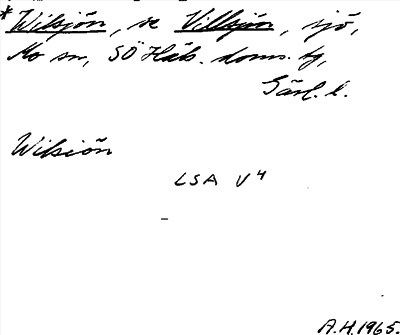 *Wilsjön, se Villsjön, sjö,
Mo sn, SÖ Häls. doms. tg,
Gävl. l.
Wilsiön
LSA V4
A.H. 1965.